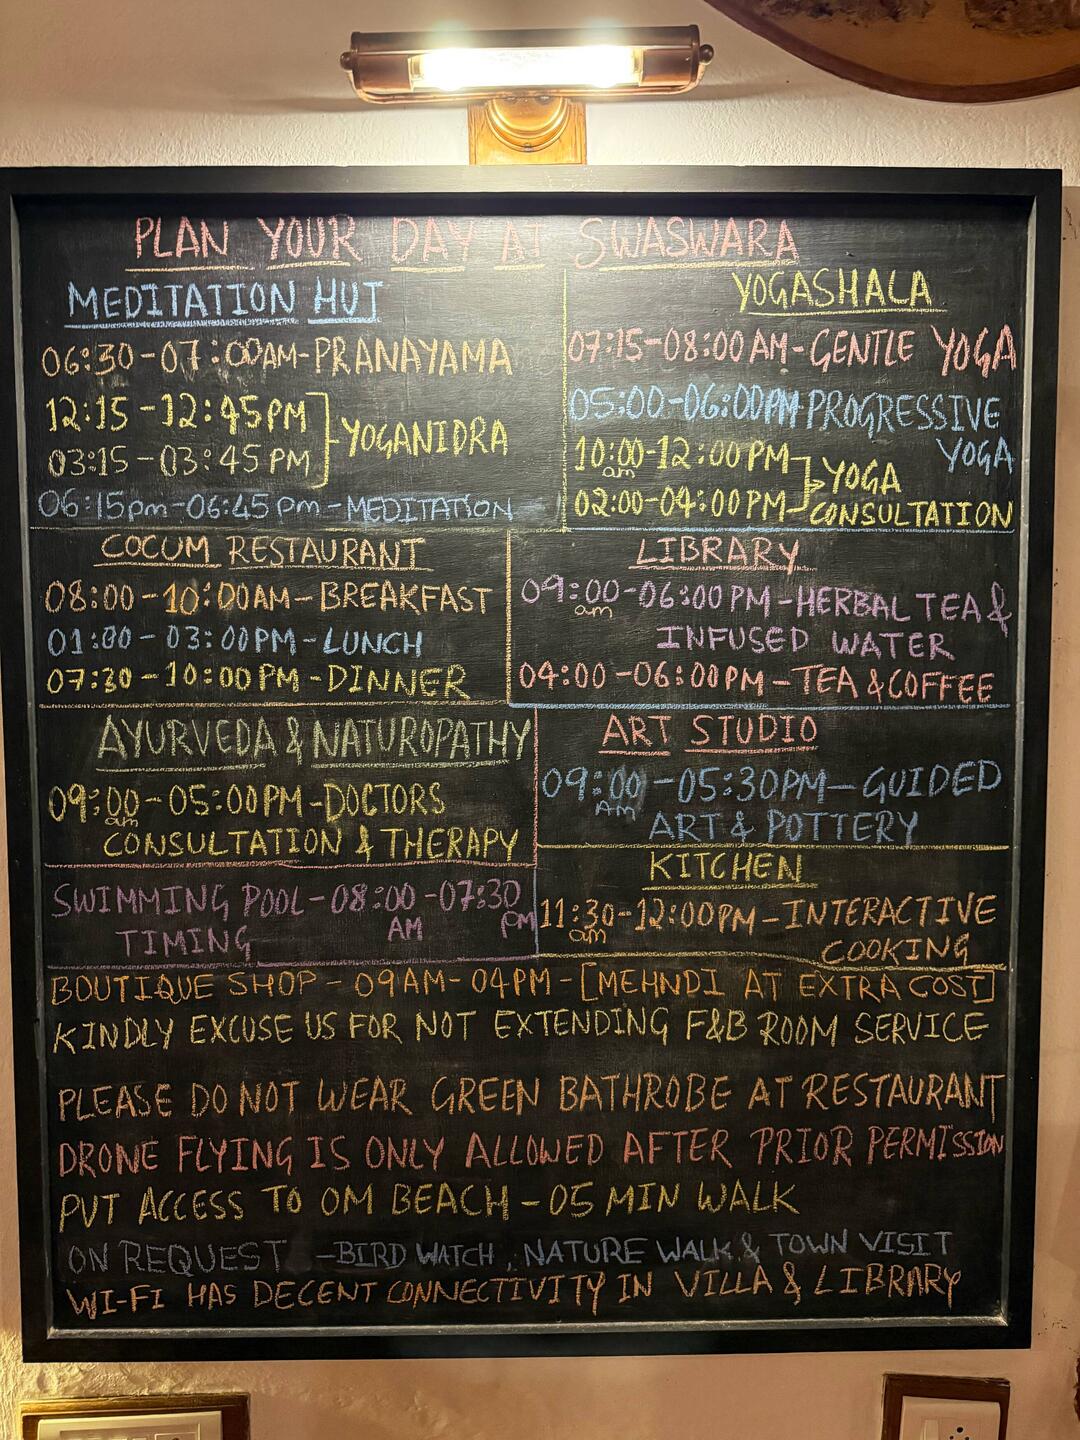 PLAN YOUR DAY AT SWASWARA
MEDITATION HUT
06:30-07:00AM-PRANAYAMA
12:15-12:45PM
03:15-03:45PM
YOGANIDRA
06:15pm-06:45pm-MEDITATION
YOGASHALA
07:15-08:00AM-GENTLE YOGA
05:00-06:00PM PROGRESSIVE
YOGA
10:00-12:00PM
am
02:00-04:00PM
YOGA
CONSULTATION
COCUM RESTAURANT
08:00-10:00AM-BREAKFAST
01:00-03:00PM-LUNCH
07:30-10:00PM-DINNER
LIBRARY
09:00-06:00PM-HERBAL TEA &
am
INFUSED WATER
04:00-06:00PM-TEA & COFFEE
AYURVEDA & NATUROPATHY
09:00-05:00PM-DOCTORS
am
CONSULTATION & THERAPY
ART STUDIO
09:00-05:30PM-GUIDED
AM
ART & POTTERY
SWIMMING POOL-08:00-07:30
AM PM
TIMING
KITCHEN
11:30-12:00PM-INTERACTIVE
am
COOKING
BOUTIQUE SHOP - 09AM-04PM-[MEHNDI AT EXTRA COST]
KINDLY EXCUSE US FOR NOT EXTENDING F&B ROOM SERVICE
PLEASE DO NOT WEAR GREEN BATHROBE AT RESTAURANT
DRONE FLYING IS ONLY ALLOWED AFTER PRIOR PERMISSION
PVT ACCESS TO OM BEACH - 05 MIN WALK
ON REQUEST -BIRD WATCH, NATURE WALK & TOWN VISIT
WI-FI HAS DECENT CONNECTIVITY IN VILLA & LIBRARY